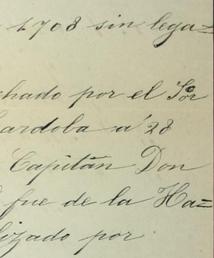 1708 sin lega=
chado por el Sor
Cardoba a' 28
Capitán Don
fue de la Ha=
lizado por